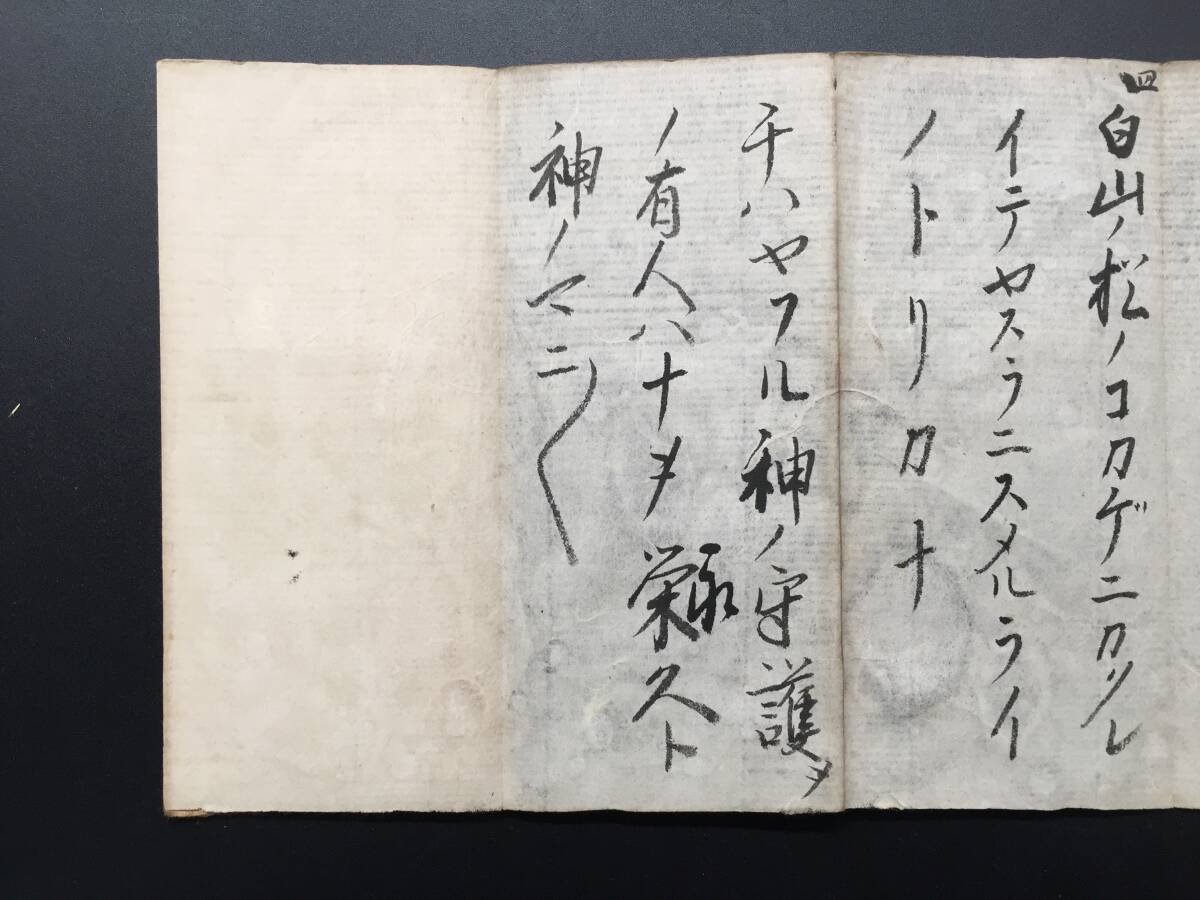 四
白山ノ松ノコカゲニカクレ
イテヤスラニスメルライ
ノトリカナ
千ハヤフル神ノ守護ヲ
ノ有人ハナヲ永
栄久ト
神ノマニ〱